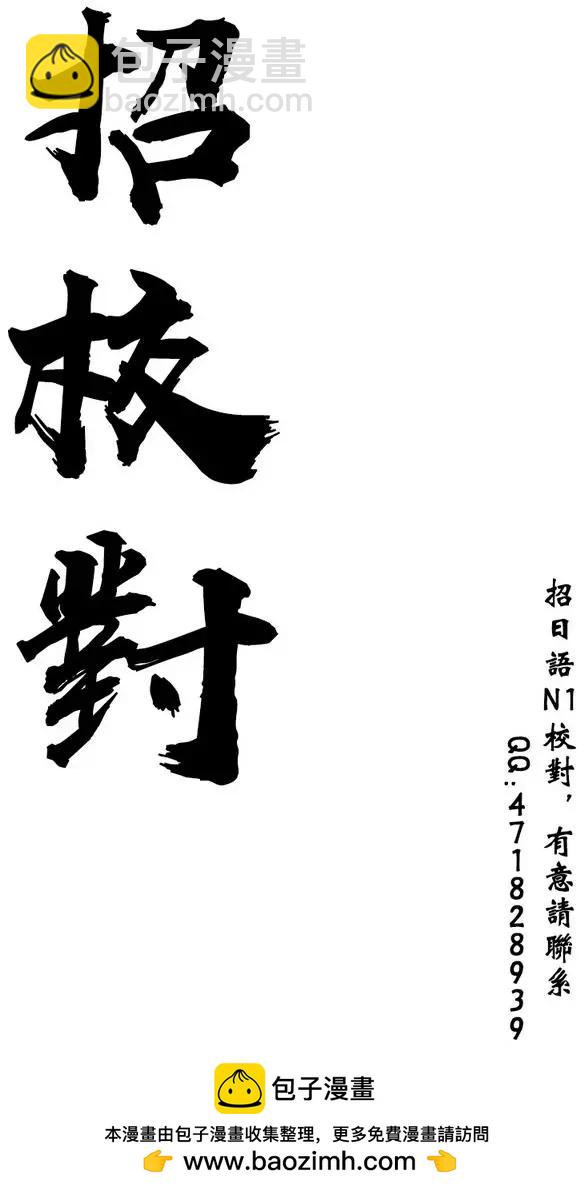 包子漫畫
baozimh.com
招校對
招日語N1校對，有意請聯系
QQ:471828939
包子漫畫
本漫畫由包子漫畫收集整理，更多免費漫畫請訪問
👉 www.baozimh.com 👈